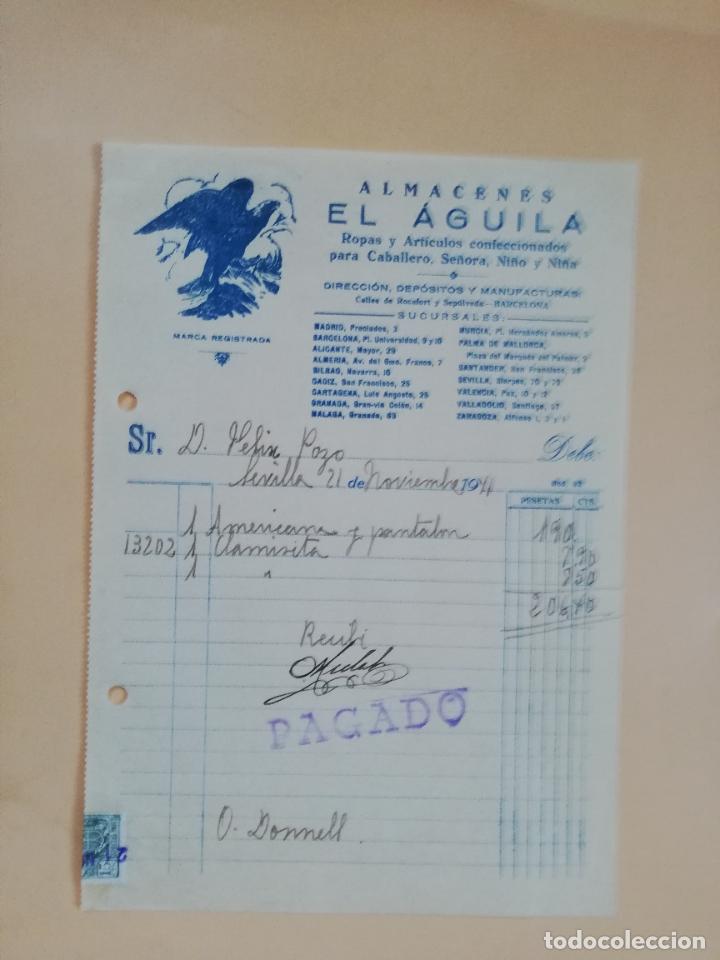 ALMACENES
EL ÁGUILA
Ropas y Artículos confeccionados
para Caballero, Señora, Niño y Niña
DIRECCIÓN, DEPÓSITOS Y MANUFACTURAS:
Calles de Rocafort y Sepúlveda - BARCELONA
SUCURSALES:
MARCA REGISTRADA
MADRID, Preciados, 3
BARCELONA, Pl. Universidad, 9 y 10
ALICANTE, Mayor, 29
ALMERIA, Av. del Gmo. Franco, 7
BILBAO, Navarra, 10
CADIZ, San Francisco, 25
CARTAGENA, Luis Angosto, 25
GRANADA, Gran-vía Colón, 14
MALAGA, Granada, 63
MURCIA, Pl. Hernández Amores,
PALMA DE MALLORCA,
Plaza del Marqués del Palmer,
SANTANDER, San Francisco,
SEVILLA, Sierpes,
VALENCIA, Paz,
VALLADOLID, Santiago,
ZARAGOZA, Alfonso I,
Sr. D. Felix Pozo Debe:
Sevilla 21 de Noviembre 1941
PESETAS CTS.
1 Americana y pantalon
13202 1 Camiseta
1 "
Recibí
PAGADO
O. Donnell
todocoleccion
todocoleccion.net